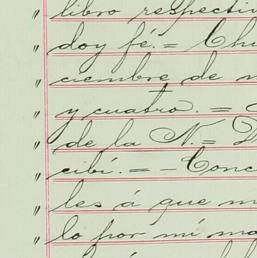 libro respectiv
" doy fé. = Chi
" ciembre de n
" y cuatro. =
" de la N. =
" cibí. = - Conc
" les á que m
" lo por mí ma